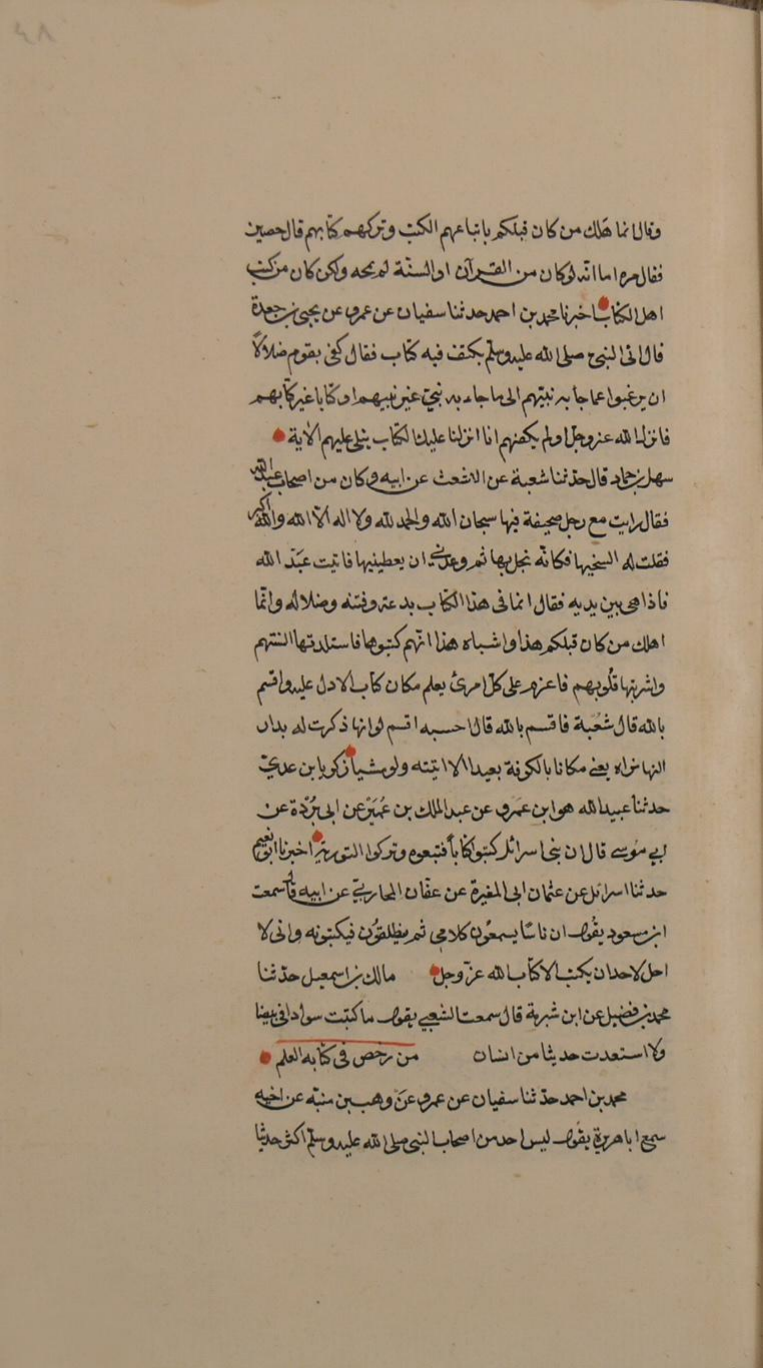 ٤٨
وقال انما هلك من كان قبلكم باتباعهم الكتب وتركهم كتابهم قال حصين
فقال مره اما انه لو كان من القرآن او السنة لم يمحه ولكن كان من كتب
اهل الكتاب اخبرنا محمد بن احمد حدثنا سفيان عن عمرو عن يحيى بن جعدة
قال اتى النبى صلى الله عليه وسلم بكتف فيه كتاب فقال كفى بقوم ضلالاً
ان يرغبوا عما جا به نبيهم الى ما جاء به نبي غير نبيهم او كتابا غير كتابهم
فانزل الله عز وجل اولم يكفهم انا انزلنا عليك الكتاب يتلى عليهم الاية
سهل بن حماد قال حدثنا شعبة عن الاشعث عن ابيه وكان من اصحاب عبد الله
فقال رايت مع رجل صحيفة فيها سبحان الله والحمد لله ولا اله الا الله والله اكبر
فقلت له انسخيها فكانه بخل بها ثم وعدنى ان يعطينيها فاتيت عبد الله
فاذا هى بين يديه فقال ان ما فى هذا الكتاب بدعة وفتنه وضلاله وانما
اهلك من كان قبلكم هذا واشباه هذا انهم كتبوها فاستلذتها السنتهم
واشربتها قلوبهم فاعزم على كل امرئ يعلم مكان كتاب الا دل عليه واقسم
بالله قال شعبة فاقسم بالله قال احسبه اقسم لو انها ذكرت له بدار
الهند اراه يعنى مكانا بالكوفة بعيدا الا اتيته ولو مشيا زكريا بن عدي
حدثنا عبيد الله هو ابن عمرو عن عبد الملك بن عمير عن ابى بردة عن
ابي موسى قال ان بنى اسرائل كتبوا كتاباً فتبعوه وتركوا التورية اخبرنا ابو نعيم
حدثنا اسرائل عن عثمان ابى المغيرة عن عفان المحاربي عن ابيه قال سمعت
ابن مسعود يقول ان ناسا يسمعون كلامى ثم ينطلقون فيكتبونه وانى لا
احل لاحد ان يكتب الا كتاب الله عز وجل مالك بن اسمعيل حدثنا
محمد بن فضيل عن ابن شبرمة قال سمعت الشعبي يقول ما كتبت سوادا فى بيضا
ولا استعدت حديثا من انسان من رخص فى كتابه العلم
محمد بن احمد حدثنا سفيان عن عمرو عن وهب بن منبه عن اخيه
سمع ابا هريرة يقول ليس احد من اصحاب النبى صلى الله عليه وسلم اكثر حديثا